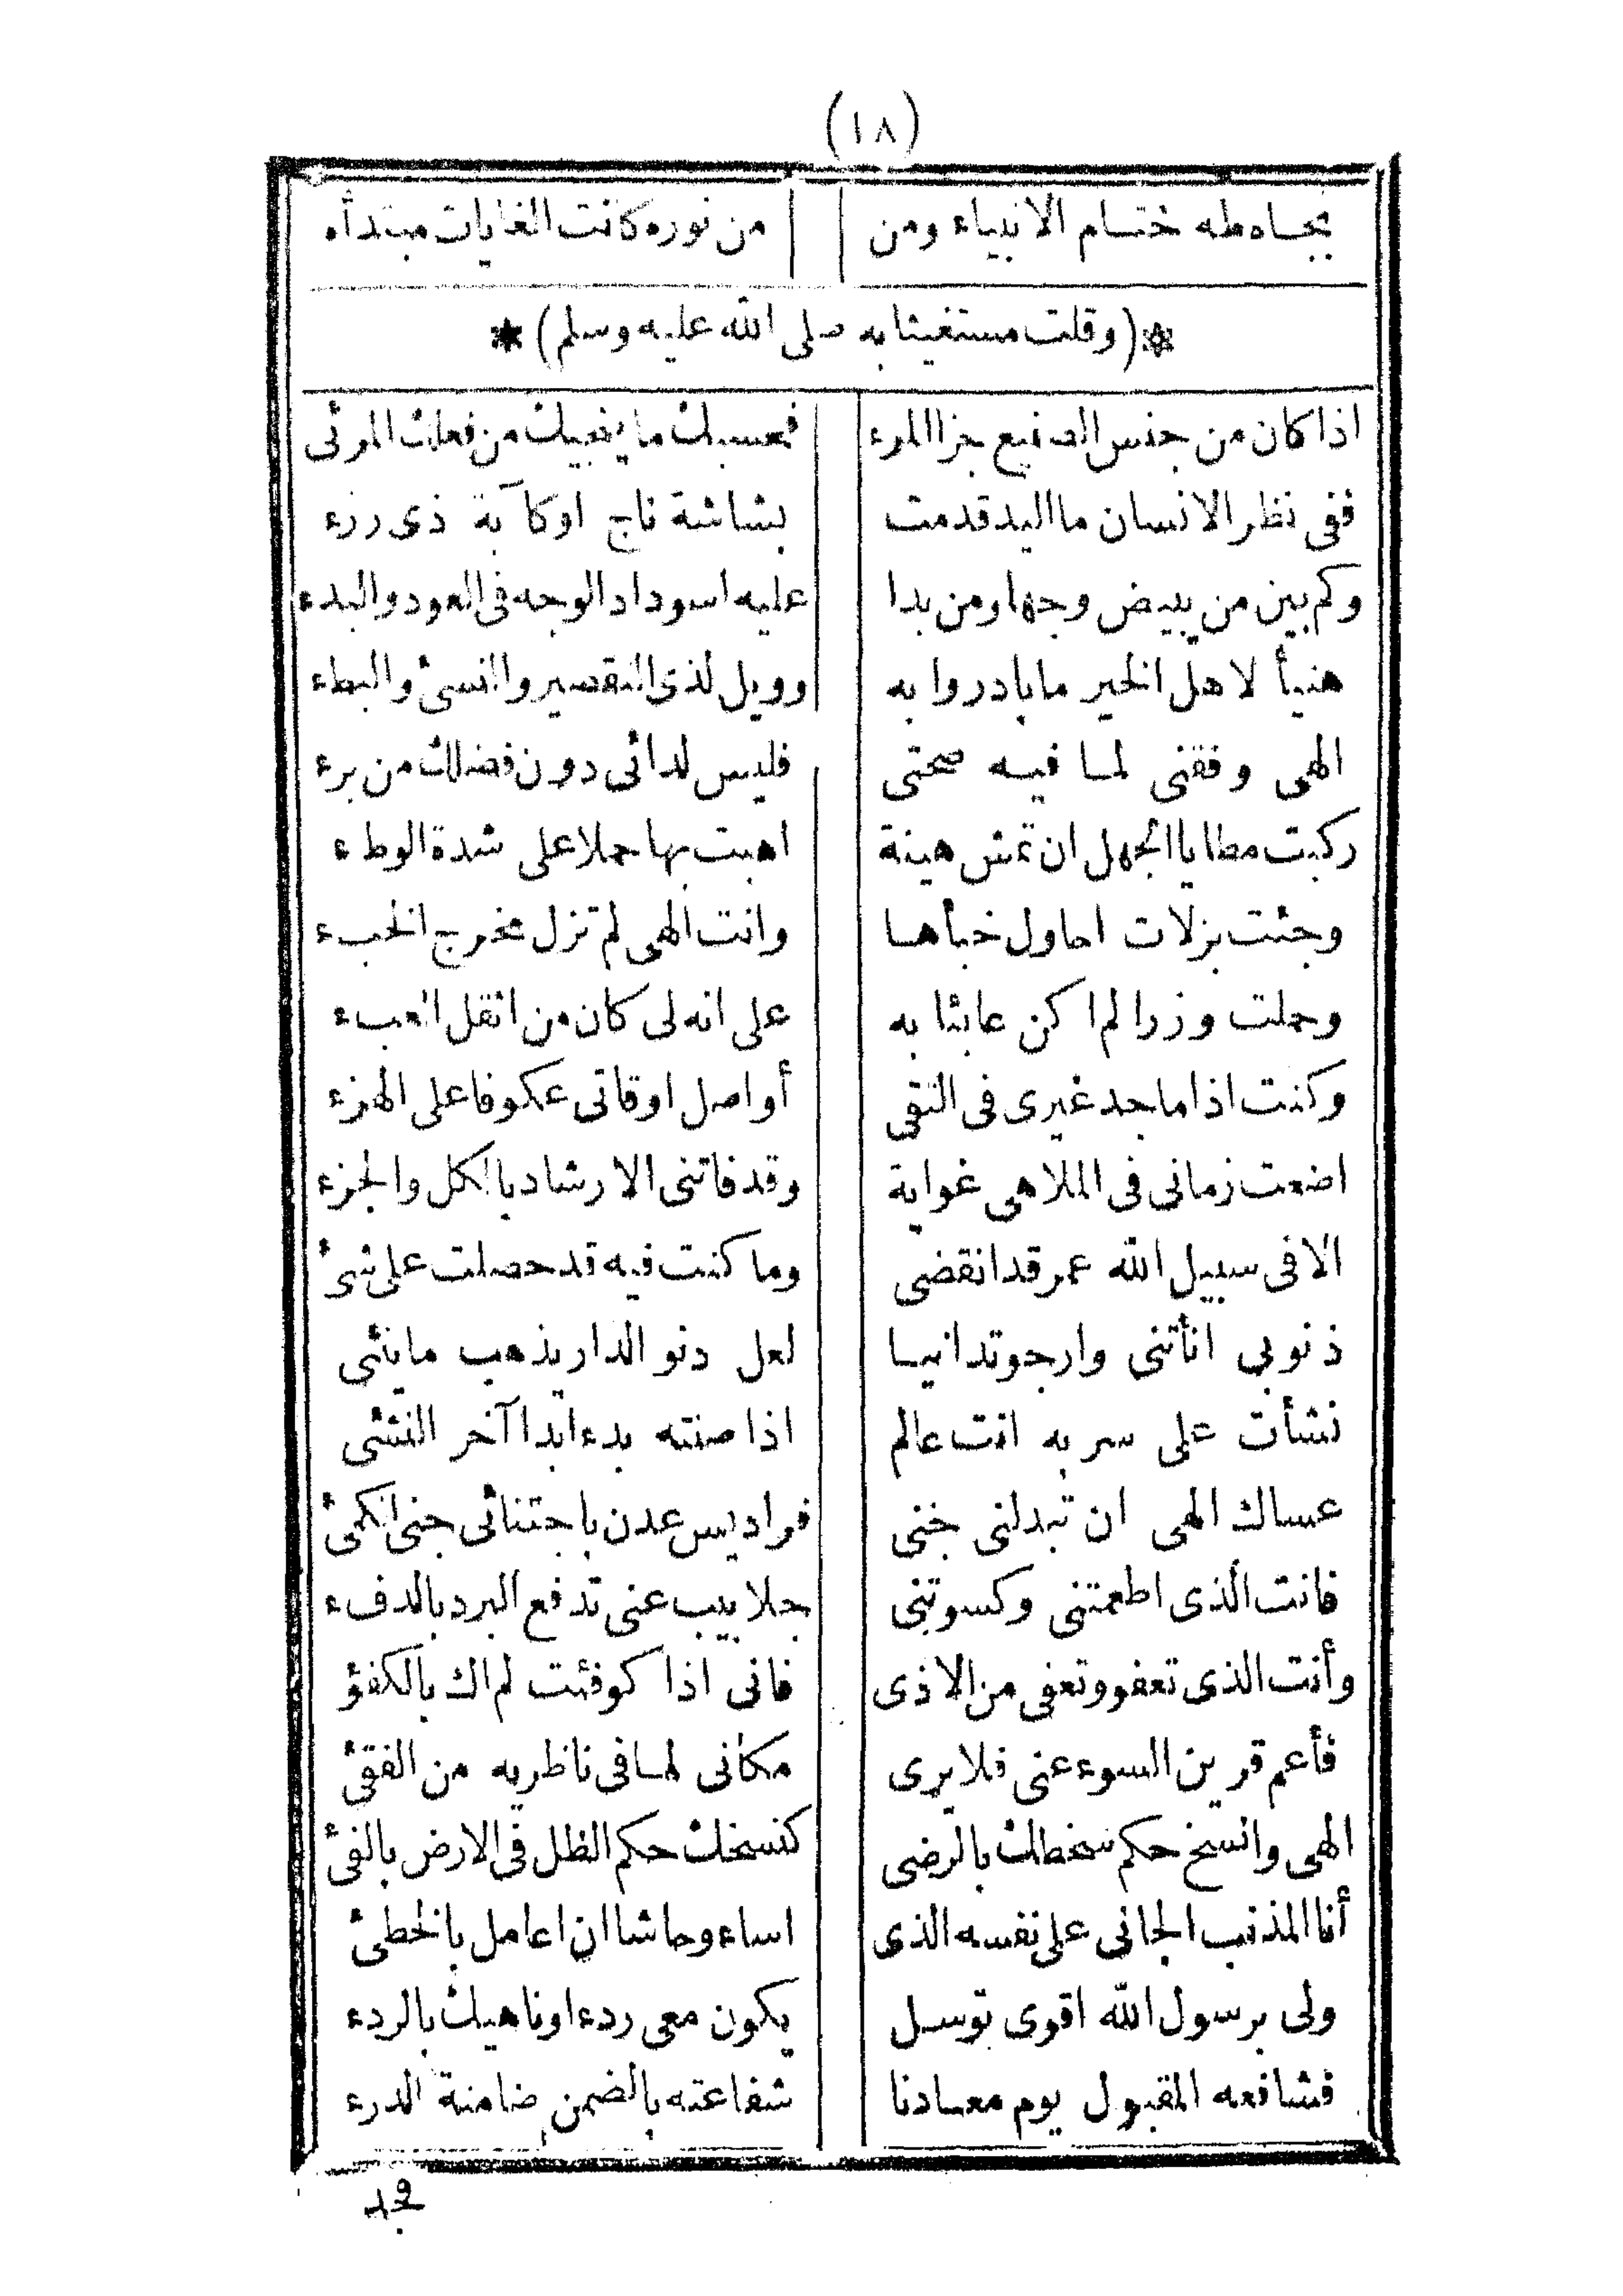 (١٨)
بجاه طه ختام الانبياء ومن من نوره كانت الغايات مبتدأه
*(وقلت مستغيثا به صلى الله عليه وسلم)*
اذا كان من جنس الصنيع جزا المرء فحسبك ما ينجيك من فعلك المرئى
ففى نظر الانسان ما اليد قدمت بشاشة ناج اوكآبة ذى رزء
وكم بين من يبيض وجها ومن بدا عليه اسوداد الوجه فى العود والبدء
هنيأ لاهل الخير ما بادروا به وويل لذى التقصير والنسئ والبطء
الهى وفقنى لما فيه صحتى فليس لدائى دون فضلك من برء
ركبت مطايا الجهل ان تمش هينة اهبت بها حملا على شدة الوطء
وجئت بزلات احاول خبأها وانت الهى لم تزل مخرج الخبء
وحملت وزرا لم اكن عابثا به على انه لى كان من اثقل العبء
وكنت اذا ما جد غيرى فى التقى أواصل اوقاتى عكوفا على الهزء
اضعت زمانى فى الملاهى غواية وقد فاتنى الارشاد بالكل والجزء
الا فى سبيل الله عمر قد انقضى وما كنت فيه قد حصلت على شئ
ذنوبى انأتنى وارجو تدانيا لعل دنو الدار يذهب ما ينئى
نشأت على سر به انت عالم اذا صنته بدء ابدا آخر النشئى
عساك الهى ان تبدلنى جنى فراديس عدن باجتنائى جنى الكمئ
فانت الذى اطعمتنى وكسوتنى جلابيب عنى تدفع البرد بالدفء
وأنت الذى تعفو وتعفى من الاذى فانى اذا كوفئت لم اك بالكفؤ
فأعم قرين السوء عنى فلا يرى مكانى لما فى ناظريه من الفقئ
الهى وانسخ حكم سخطك بالرضى كنسخك حكم الظل فى الارض بالفئ
أنا المذنب الجانى على نفسه الذى اساء وحاشا ان اعامل بالخطئ
ولى برسول الله اقوى توسل يكون معى ردء اوناهيك بالردء
فشافعه المقبول يوم معادنا شفاعته بالضمن ضامنة الدرء